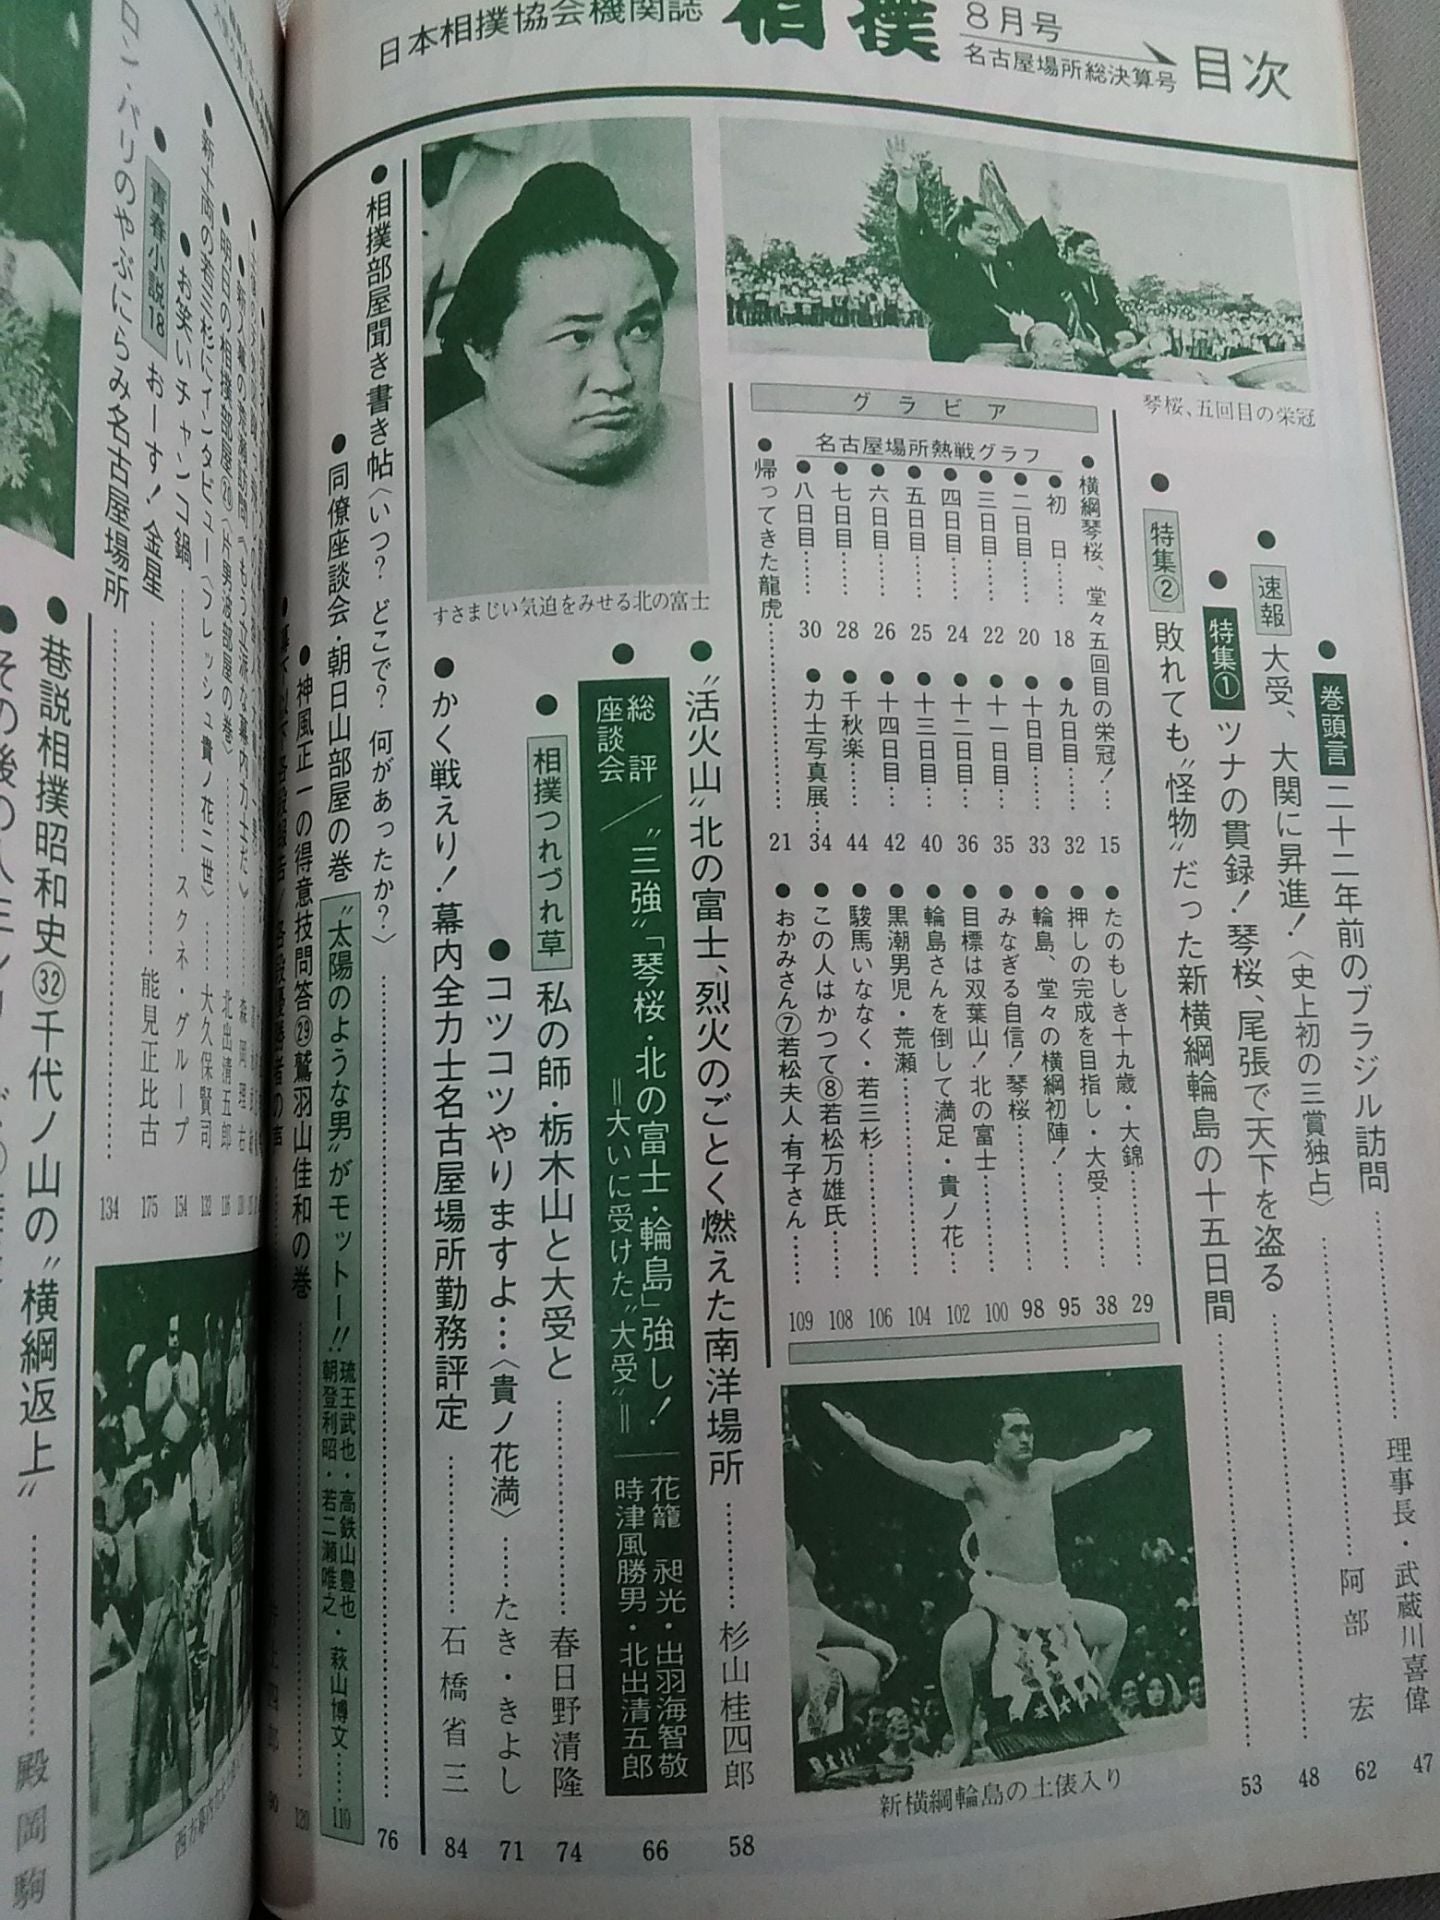 日本相撲協会機関誌
相撲
8月号
名古屋場所総決算号
目次
琴桜、五回目の栄冠
●巻頭言 二十二年前のブラジル訪問……理事長・武蔵川喜偉 47
●速報 大受、大関に昇進!〈史上初の三賞独占〉……阿部 宏 62
●特集① ツナの貫録!琴桜、尾張で天下を盗る……48
●特集② 敗れても"怪物"だった新横綱輪島の十五日間……53
グラビア
●横綱琴桜、堂々五回目の栄冠!……15
名古屋場所熱戦グラフ
●初 日……18
●二日目……20
●三日目……22
●四日目……24
●五日目……25
●六日目……26
●七日目……28
●八日目……30
●九日目……32
●十日目……33
●十一日目……35
●十二日目……36
●十三日目……40
●十四日目……42
●千秋楽……44
●力士写真展……34
●帰ってきた龍虎……21
●たのもしき十九歳・大錦……29
●押しの完成を目指し・大受……38
●輪島、堂々の横綱初陣!……95
●みなぎる自信!琴桜……98
●目標は双葉山!北の富士……100
●輪島さんを倒して満足・貴ノ花……102
●黒潮男児・荒瀬……104
●駿馬いななく・若三杉……106
●この人はかつて⑧若松万雄氏……108
●おかみさん⑦若松夫人・有子さん……109
新横綱輪島の土俵入り
すさまじい気迫をみせる北の富士
●"活火山"北の富士、烈火のごとく燃えた南洋場所……杉山桂四郎 58
●総評座談会/"三強"「琴桜・北の富士・輪島」強し!
=大いに受けた"大受"=
花籠 昶光・出羽海智敬
時津風勝男・北出清五郎 66
●相撲つれづれ草 私の師・栃木山と大受と……春日野清隆 74
●コツコツやりますよ…〈貴ノ花満〉……たき・きよし 71
●かく戦えり!幕内全力士名古屋場所勤務評定……石橋省三 84
●相撲部屋聞き書き帖〈いつ?どこで?何があったか?〉……76
●同僚座談会・朝日山部屋の巻 "太陽のような男"がモットー!!
琉王武也・高鉄山豊也・萩山博文
朝登利昭・若二瀬唯之……110
●神風正一の得意技問答㉙鷲羽山佳和の巻……120
●明日の相撲部屋⑳〈片男波部屋の巻〉……北出清五郎 116
●新十両の若三杉にインタビュー〈フレッシュ貴ノ花二世〉……大久保賢司 132
●お笑いチャンコ鍋……スクネ・グループ 154
●青春小説18 おーす!金星……能見正比古 175
ロンパリのやぶにらみ名古屋場所……134
●巷説相撲昭和史㉜千代ノ山の"横綱返上"……殿岡駒